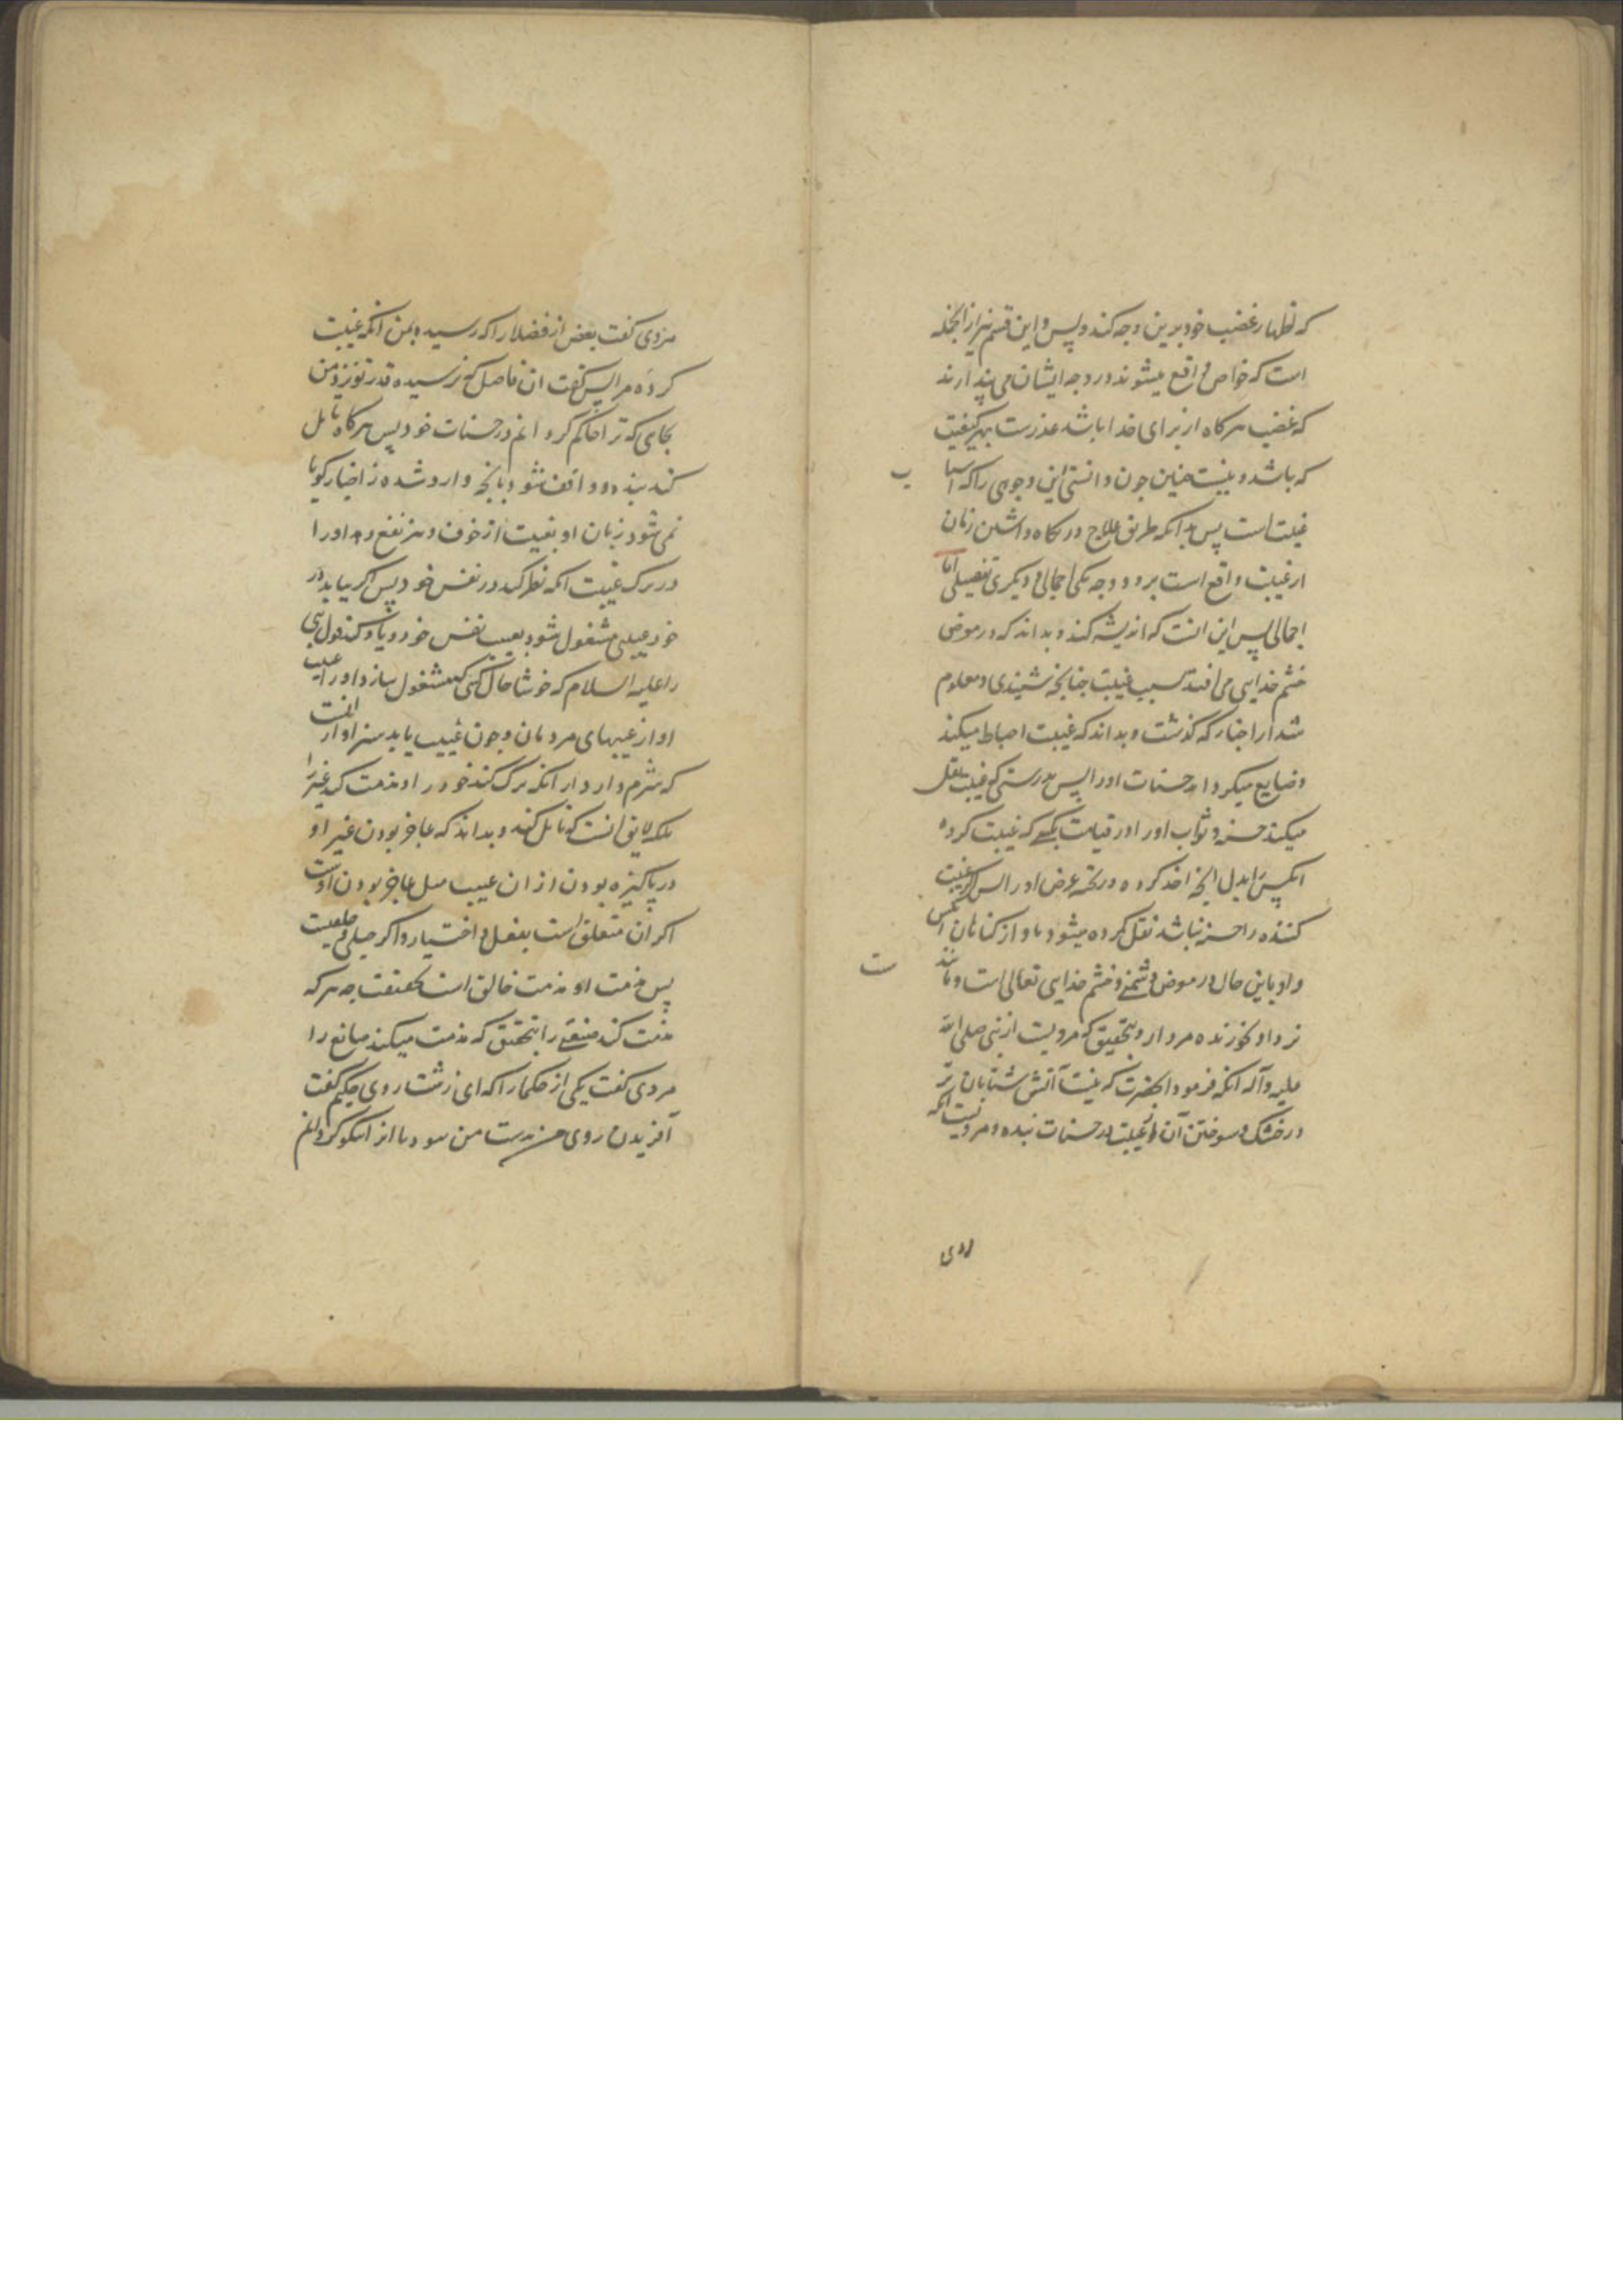 که اظهار غضب خود برین وجه کند و پس و این قسم نیز از آنجمله
است که خواص واقع میشوند در و چه ایشان می پندارند
که غضب هر کاه از برای خدا باشد عذرست بهر کیفیت
که باشد و نیست چنین چون دانستی این وجوهی را که اسباب
غیبت است پس بدانکه طریق علاج در نکاه داشتن زبان
از غیبت واقع است بر دو وجه یکی اجمالی و دیگری تفصیلی اما
اجمالی پس این است که اندیشه کند و بداند که در معرض
خشم خدایی می افتد بسبب غیبت چنانچه شنیدی و معلوم
شد از اخبار که گذشت و بداند که غیبت احباط میکند
و ضایع میکرداند حسنات او را پس بدرستی که غیبت نقل
میکند حسنه و ثواب او را در قیامت بکسی که غیبت کرده
انکس را بدل آنچه اخذ کرده و ریخته عرض او را پس اگر غیبت
کننده را حسنه نباشد نقل کرده میشود باو از کناهان انکس
و او باین حال در معرض دشمنی و خشم خدای تعالی است و مانندست
نزد او بخورنده مردار و بتحقیق که مرویست از نبی صلی الله
علیه و آله انکه فرمود آنحضرت که نیست آتش شتابان تر
در خشک و سوختن آن از غیبت در حسنات بنده و مرویست انکه
مردی
مردی کفت بعض از فضلا را که رسیده بمن انکه غیبت
کرده مرا پس کفت ان فاضل که نرسیده قدر تو نزد من
بجایی که ترا حاکم کردانم در حسنات خود پس هر کاه تامل
کند بنده و واقف شود بانچه وارد شده از اخبار کویا
نمی شود زبان او بغیبت از خوف و نیز نفع دهد او را
در ترک غیبت انکه نظر کند در نفس خود پس اکر بیابد در
خود عیبی مشغول شود بعیب نفس خود و یاد کند قول نبی
را علیه السلام که خوشا حال کسی که مشغول سازد او را عیب
او از عیبهای مردمان و چون عیب یابد سزاوار انست
که شرم دارد از انکه ترک کند خود را و مذمت کند غیر را
بلکه لایق انست که تامل کند و بداند که عاجز بودن غیر او
در پاکیزه بودن از ان عیب مثل عاجز بودن اوست
اکر ان متعلق است بفعل و اختیار و اکر جبلی و خلقیست
پس مذمت او مذمت خالق است بحقیقت چه هر که
مذمت کند صنعتی را بتحقیق که مذمت میکند صانع را
مردی کفت یکی از حکما را که ای زشت روی حکیم کفت
آفریدن روی من بدست من نبود تا انرا نیکو کردانم